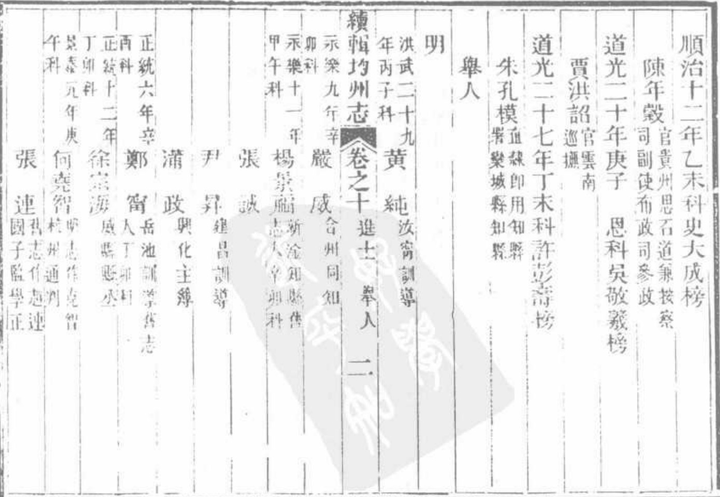 順治十二年乙未科史大成榜
陳年穀 官貴州思石道兼按察司副使布政司參政
道光二十年庚子 恩科吳敬羲榜
賈洪詔 官雲南巡撫
道光二十七年丁未科許彭壽榜
朱孔模 直隸即用知縣署欒城縣知縣
舉人
明
洪武二十九年丙子科 黃純 汝甯訓導
續輯均州志 卷之十 進士 舉人 二
永樂九年辛卯科 嚴威 合州同知
永樂十二年甲午科 楊景福 新淦知縣舊志作辛卯科
張誠
尹昇 建昌訓導
蒲政 興化主簿
正統六年辛酉科 鄭甯 岳池訓導舊志作丁卯科
正統十二年丁卯科 徐宗海 威縣縣丞
景泰元年庚午科 何堯智 舊志作克智杭州通判
張連 舊志作趙連國子監學正